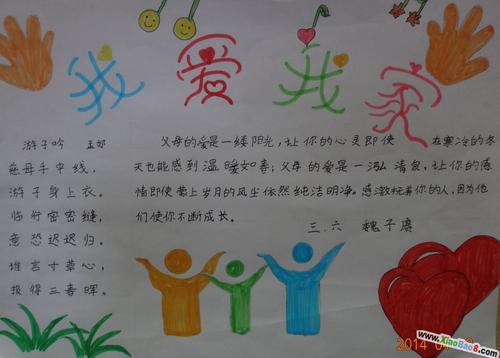 我爱我家
游子吟 孟郊
慈母手中线,
游子身上衣。
临行密密缝,
意恐迟迟归。
谁言寸草心,
报得三春晖。
父母的爱是一缕阳光,让你的心灵即使 在寒冷的冬
天也能感到温暖如春;父母的爱是一泓清泉,让你的感
情即使蒙上岁月的风尘依然纯洁明净。感激抚养你的人,因为他
们使你不断成长。
三.六 魏子
2014
www.XiaoBao8.com